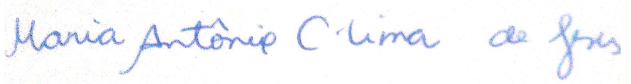 Maria Antônia C. Lima de Jesus